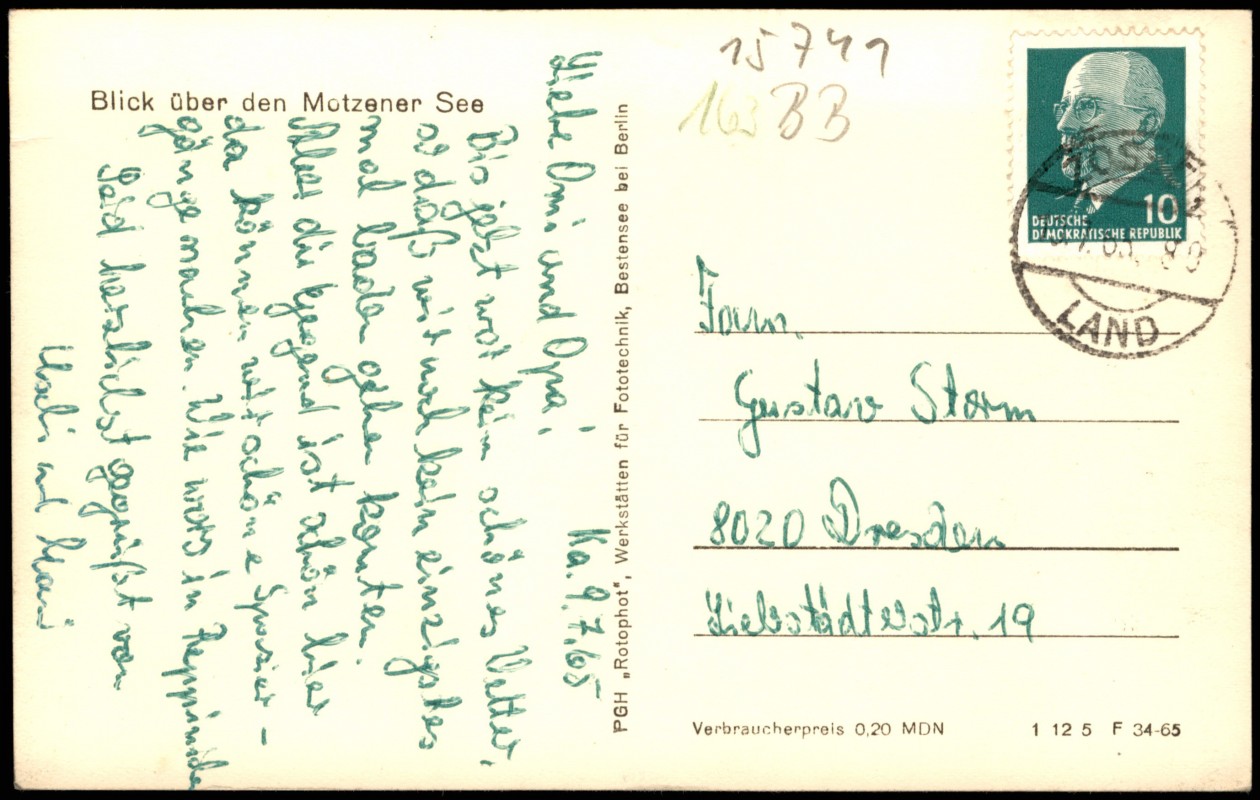 Blick über den Motzener See
Ka. 9.7.65
Liebe Omi und Opa!
Bis jetzt war kein schönes Wetter,
so daß wir noch kein einziges
mal baden gehen konnten.
Aber die Gegend ist schön hier
da können wir schöne Spazier-
gänge machen. Wie wars in
Seid herzlichst gegrüßt von
und
PGH „Rotophot", Werkstätten für Fototechnik, Bestensee bei Berlin
15741
163 BB
10
DEUTSCHE
DEMOKRATISCHE REPUBLIK
LAND
Fam.
Gustav Storm
8020 Dresden
Liebstädterstr. 19
Verbraucherpreis 0,20 MDN
1 12 5 F 34-65